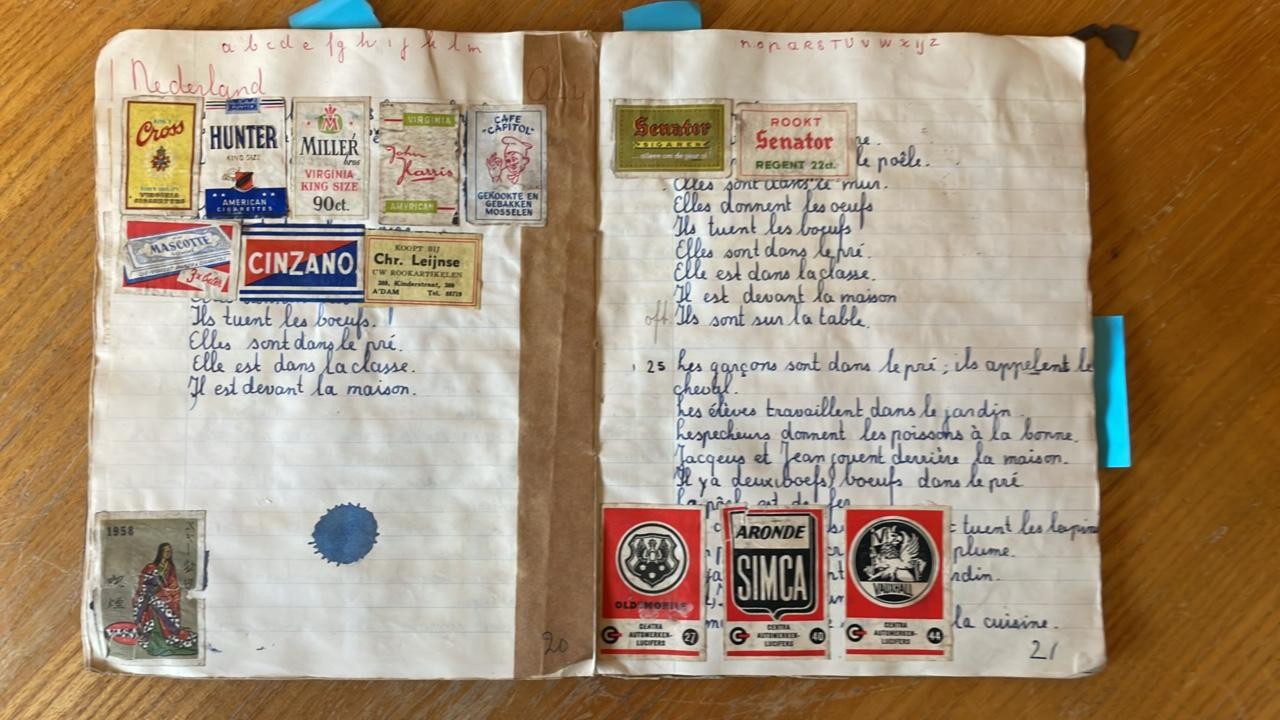 a b c d e f g h i j k l m
Nederland
Cross
VIRGINIA
CIGARETTES
HUNTER
KING SIZE
AMERICAN
CIGARETTES
M
MILLER
bros
VIRGINIA
KING SIZE
90ct.
VIRGINIA
John
Harris
AMERICAN
CAFE
"CAPITOL"
GEKOOKTE EN
GEBAKKEN
MOSSELEN
MASCOTTE
3x beter
CINZANO
KOOPT BIJ
Chr. Leijnse
UW ROOKARTIKELEN
A'DAM Tel.
Ils tuent les boeufs.
Elles sont dans le pré.
Elle est dans la classe.
Il est devant la maison.
1958
20
n o p q R S T U V W X IJ Z
Senator
SIGAREN
alleen om de geur al
ROOKT
Senator
REGENT 22ct.
re.
le poêle.
Elles sont dans le mur.
Elles donnent les oeufs
Ils tuent les boeufs
Elles sont dans le pré.
Elle est dans la classe.
Il est devant la maison
off. Ils sont sur la table.
25 Les garçons sont dans le pré; ils appelent le
cheval.
Les élèves travaillent dans le jardin.
Les pecheurs donnent les poissons à la bonne.
Jacqeus et Jean jouent derrière la maison.
Il y a deux boefs boeufs dans le pré
tuent les lapins
plume.
rdin.
la cuisine.
OLDSMOBILE
CENTRA
AUTOMERKEN-
LUCIFERS
27
ARONDE
SIMCA
CENTRA
AUTOMERKEN-
LUCIFERS
40
VAUXHALL
CENTRA
AUTOMERKEN-
LUCIFERS
44
21